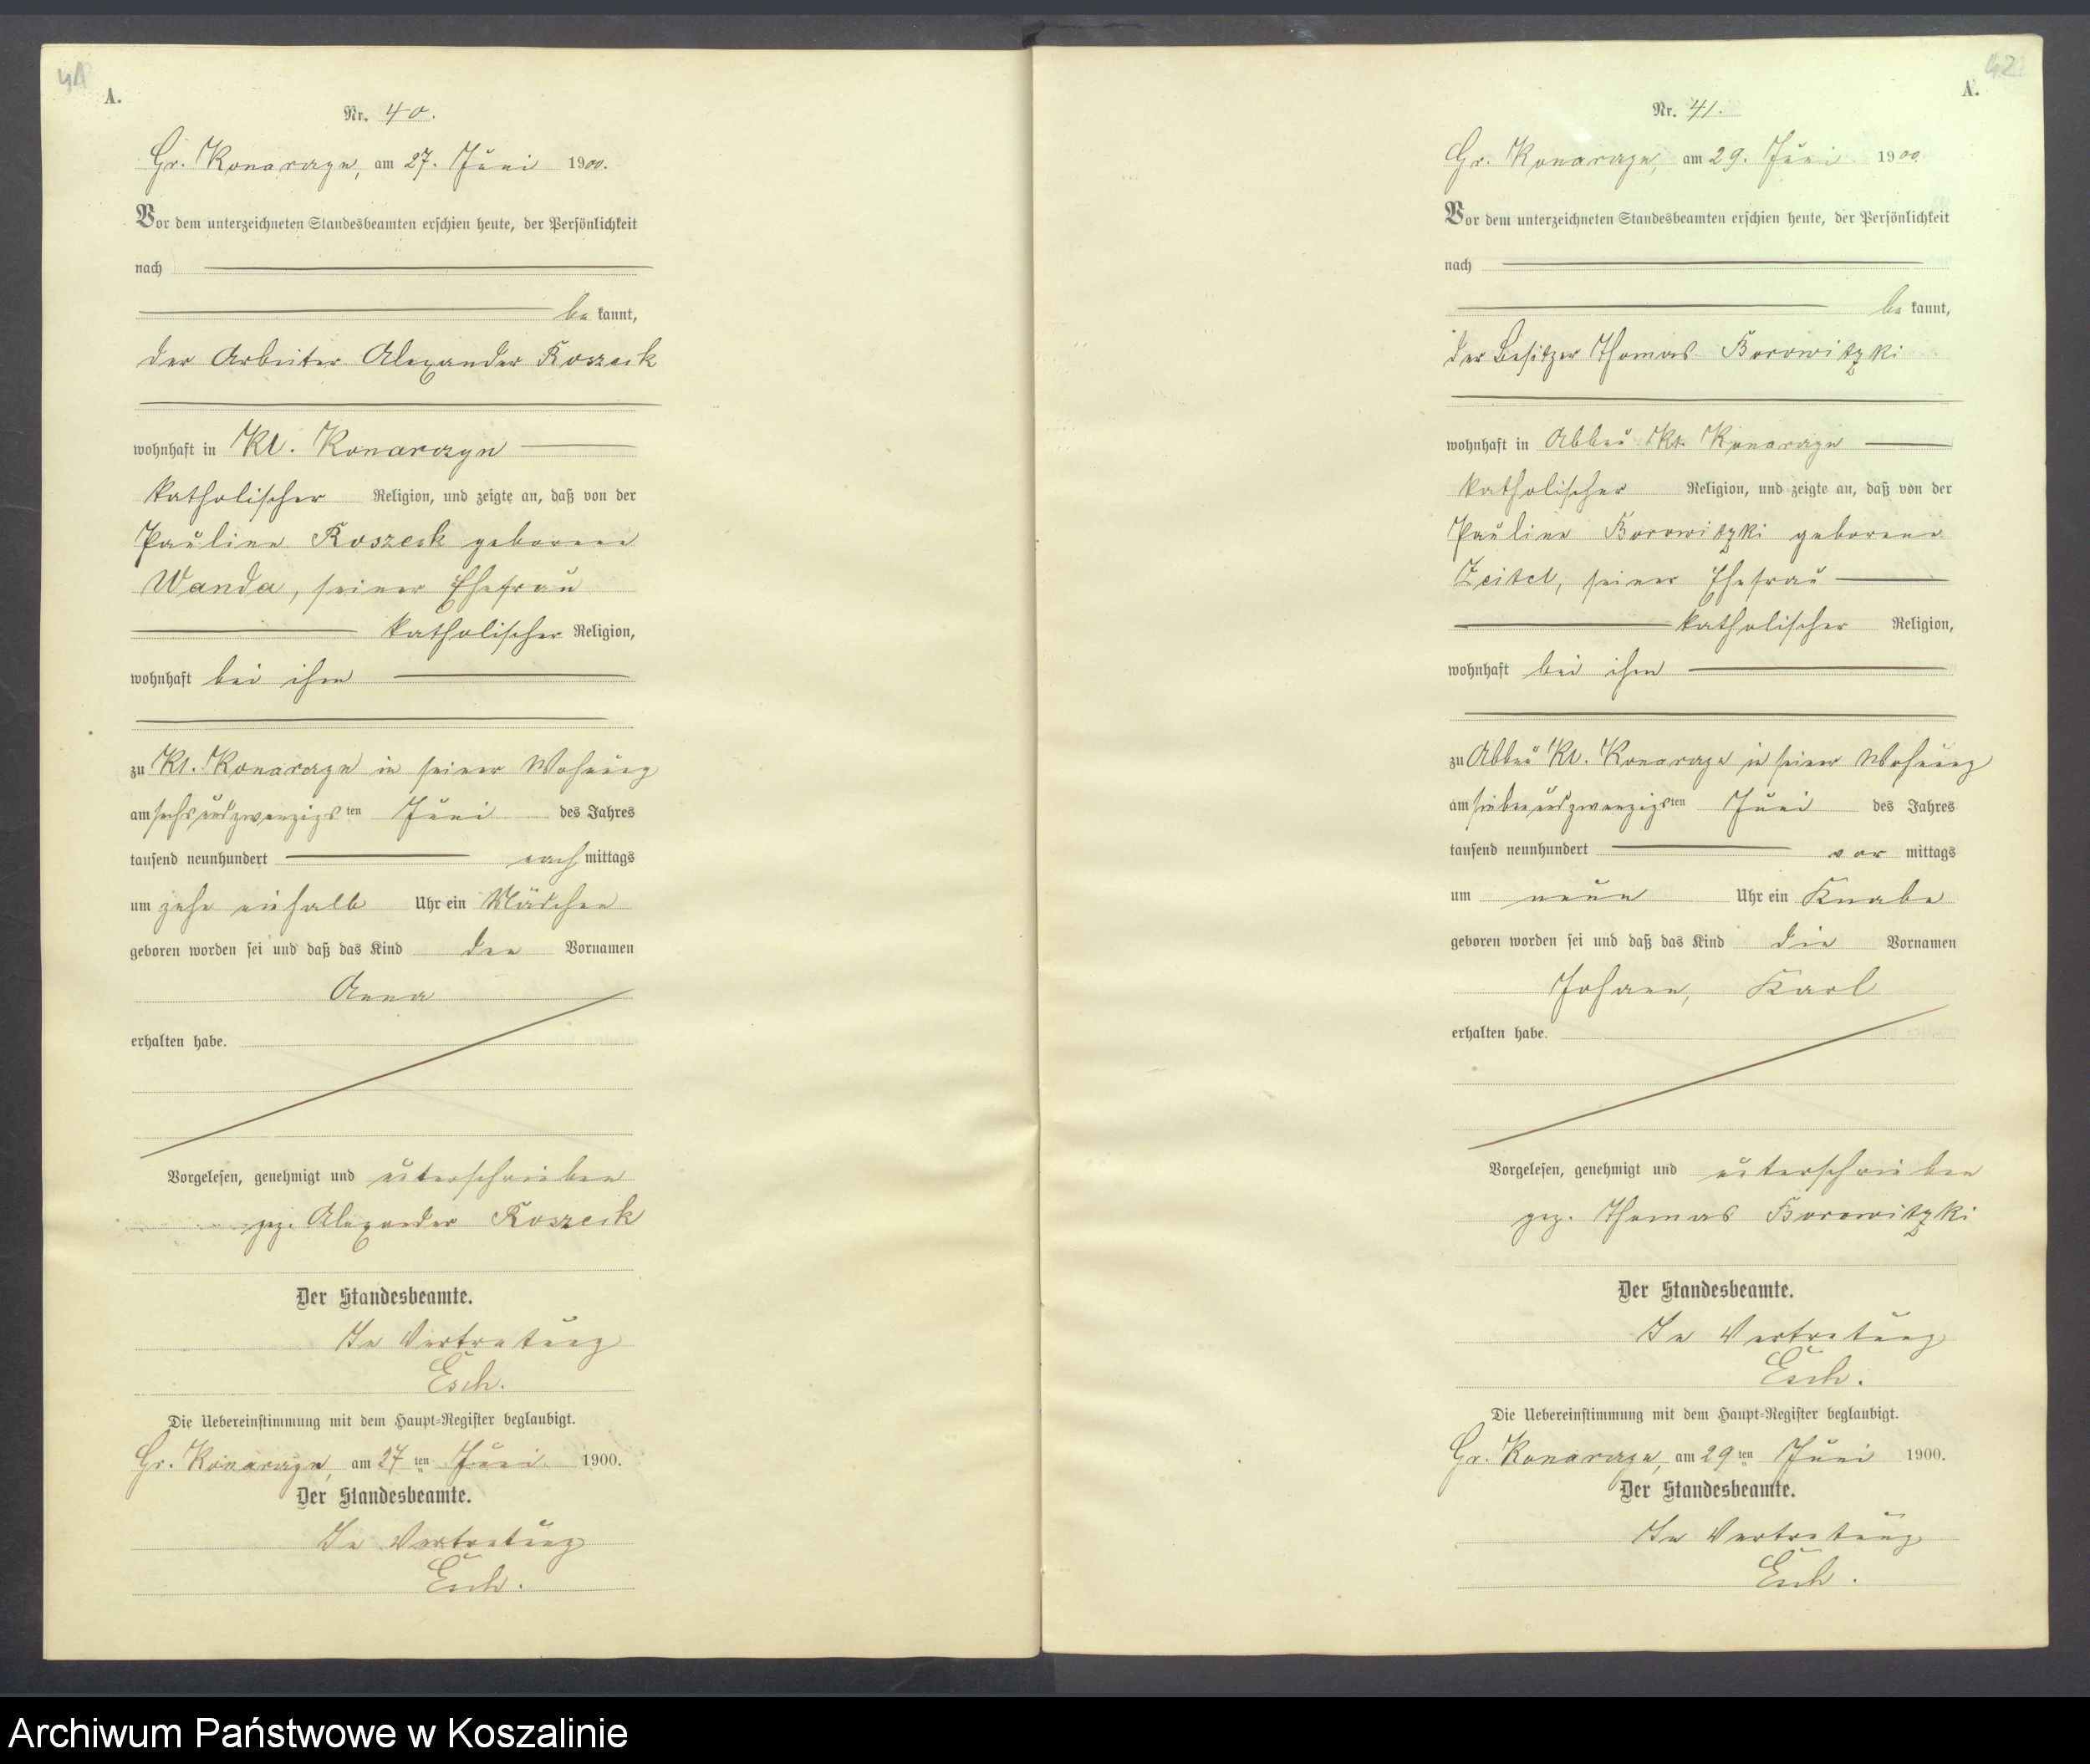 41
A.
Nr. 40.
Gr. Konarzyn, am 27. Juni 1900.
Vor dem unterzeichneten Standesbeamten erschien heute, der Persönlichkeit
nach
be kannt,
der Arbeiter Alexander Roszeck
wohnhaft in Kl. Konarczyn
katholischer Religion, und zeigte an, daß von der
Pauline Roszeck geborene
Wanda, seiner Ehefrau
katholischer Religion,
wohnhaft bei ihm
zu Kl. Konarzyn in seiner Wohnung
am sechsundzwanzigsten Juni des Jahres
tausend neunhundert nach mittags
um zehn einhalb Uhr ein Mädchen
geboren worden sei und daß das Kind den Vornamen
Anna
erhalten habe.
Vorgelesen, genehmigt und unterschrieben
gez. Alexander Roszeck
Der Standesbeamte.
In Vertretung
Esch.
Die Uebereinstimmung mit dem Haupt-Register beglaubigt.
Gr. Konarzyn, am 27ten Juni 1900.
Der Standesbeamte.
In Vertretung
Esch.
42
A.
Nr. 41.
Gr. Konarzyn, am 29. Juni 1900
Vor dem unterzeichneten Standesbeamten erschien heute, der Persönlichkeit
nach
be kannt,
der Besitzer Thomas Borowitzki
wohnhaft in Abbau Kl. Konarzyn
katholischer Religion, und zeigte an, daß von der
Pauline Borowitzki geborene
Zeitel, seiner Ehefrau
katholischer Religion,
wohnhaft bei ihm
zu Abbau Kl. Konarzyn in seiner Wohnung
am siebenundzwanzigsten Juni des Jahres
tausend neunhundert vor mittags
um neun Uhr ein Knabe
geboren worden sei und daß das Kind die Vornamen
Johann, Karl
erhalten habe.
Vorgelesen, genehmigt und unterschrieben
gez. Thomas Borowitzki
Der Standesbeamte.
In Vertretung
Esch.
Die Uebereinstimmung mit dem Haupt-Register beglaubigt.
Gr. Konarzyn, am 29ten Juni 1900.
Der Standesbeamte.
In Vertretung
Esch.
Archiwum Państwowe w Koszalinie